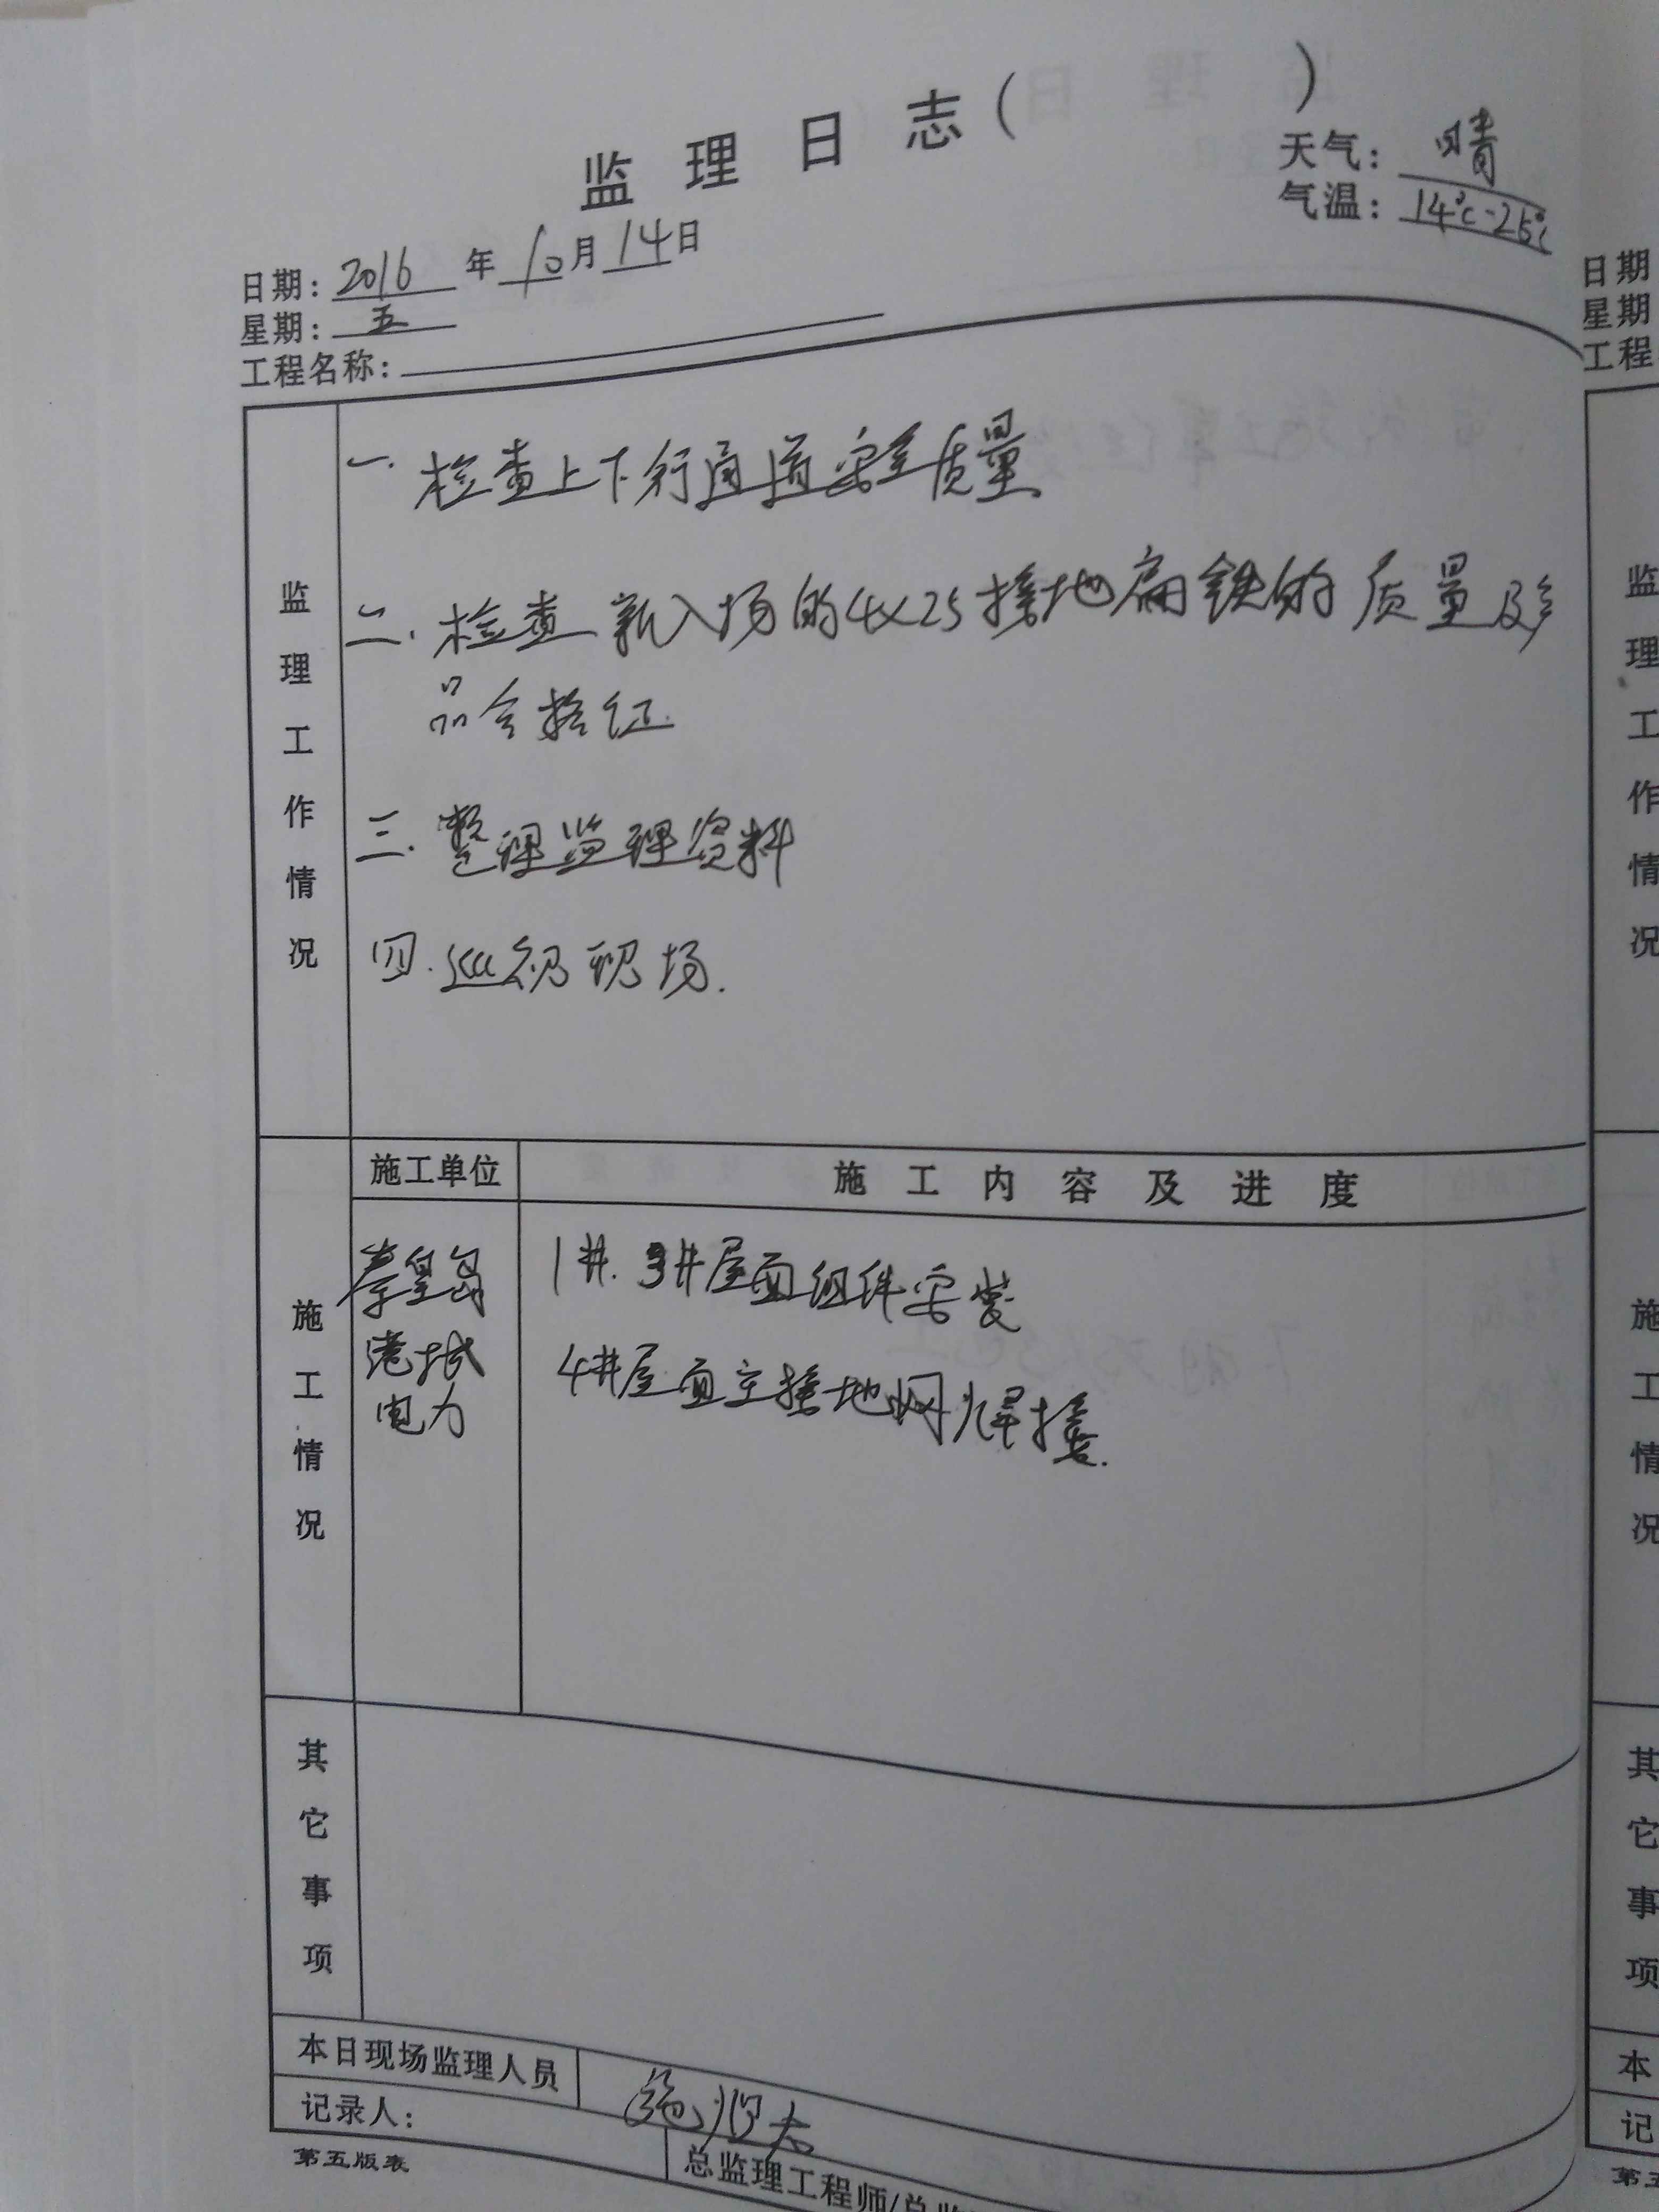 监理日志( )
天气: 晴
气温: 14℃-25℃
日期: 2016 年 10 月 14 日
星期: 五
工程名称:
监理工作情况
一. 检查上下行通道安全质量
二. 检查新入场的4×25接地扁铁的质量及产
品合格证.
三. 整理监理资料
四. 巡视现场.
施工情况
施工单位
施工内容及进度
秦皇岛
港城
电力
1#. 3#屋面组件安装
4#屋面主接地网焊接.
其它事项
本日现场监理人员
记录人:
总监理工程师/总监
第五版表
日期
星期
工程
监理工作情况
施工情况
其它事项
本
记
第五